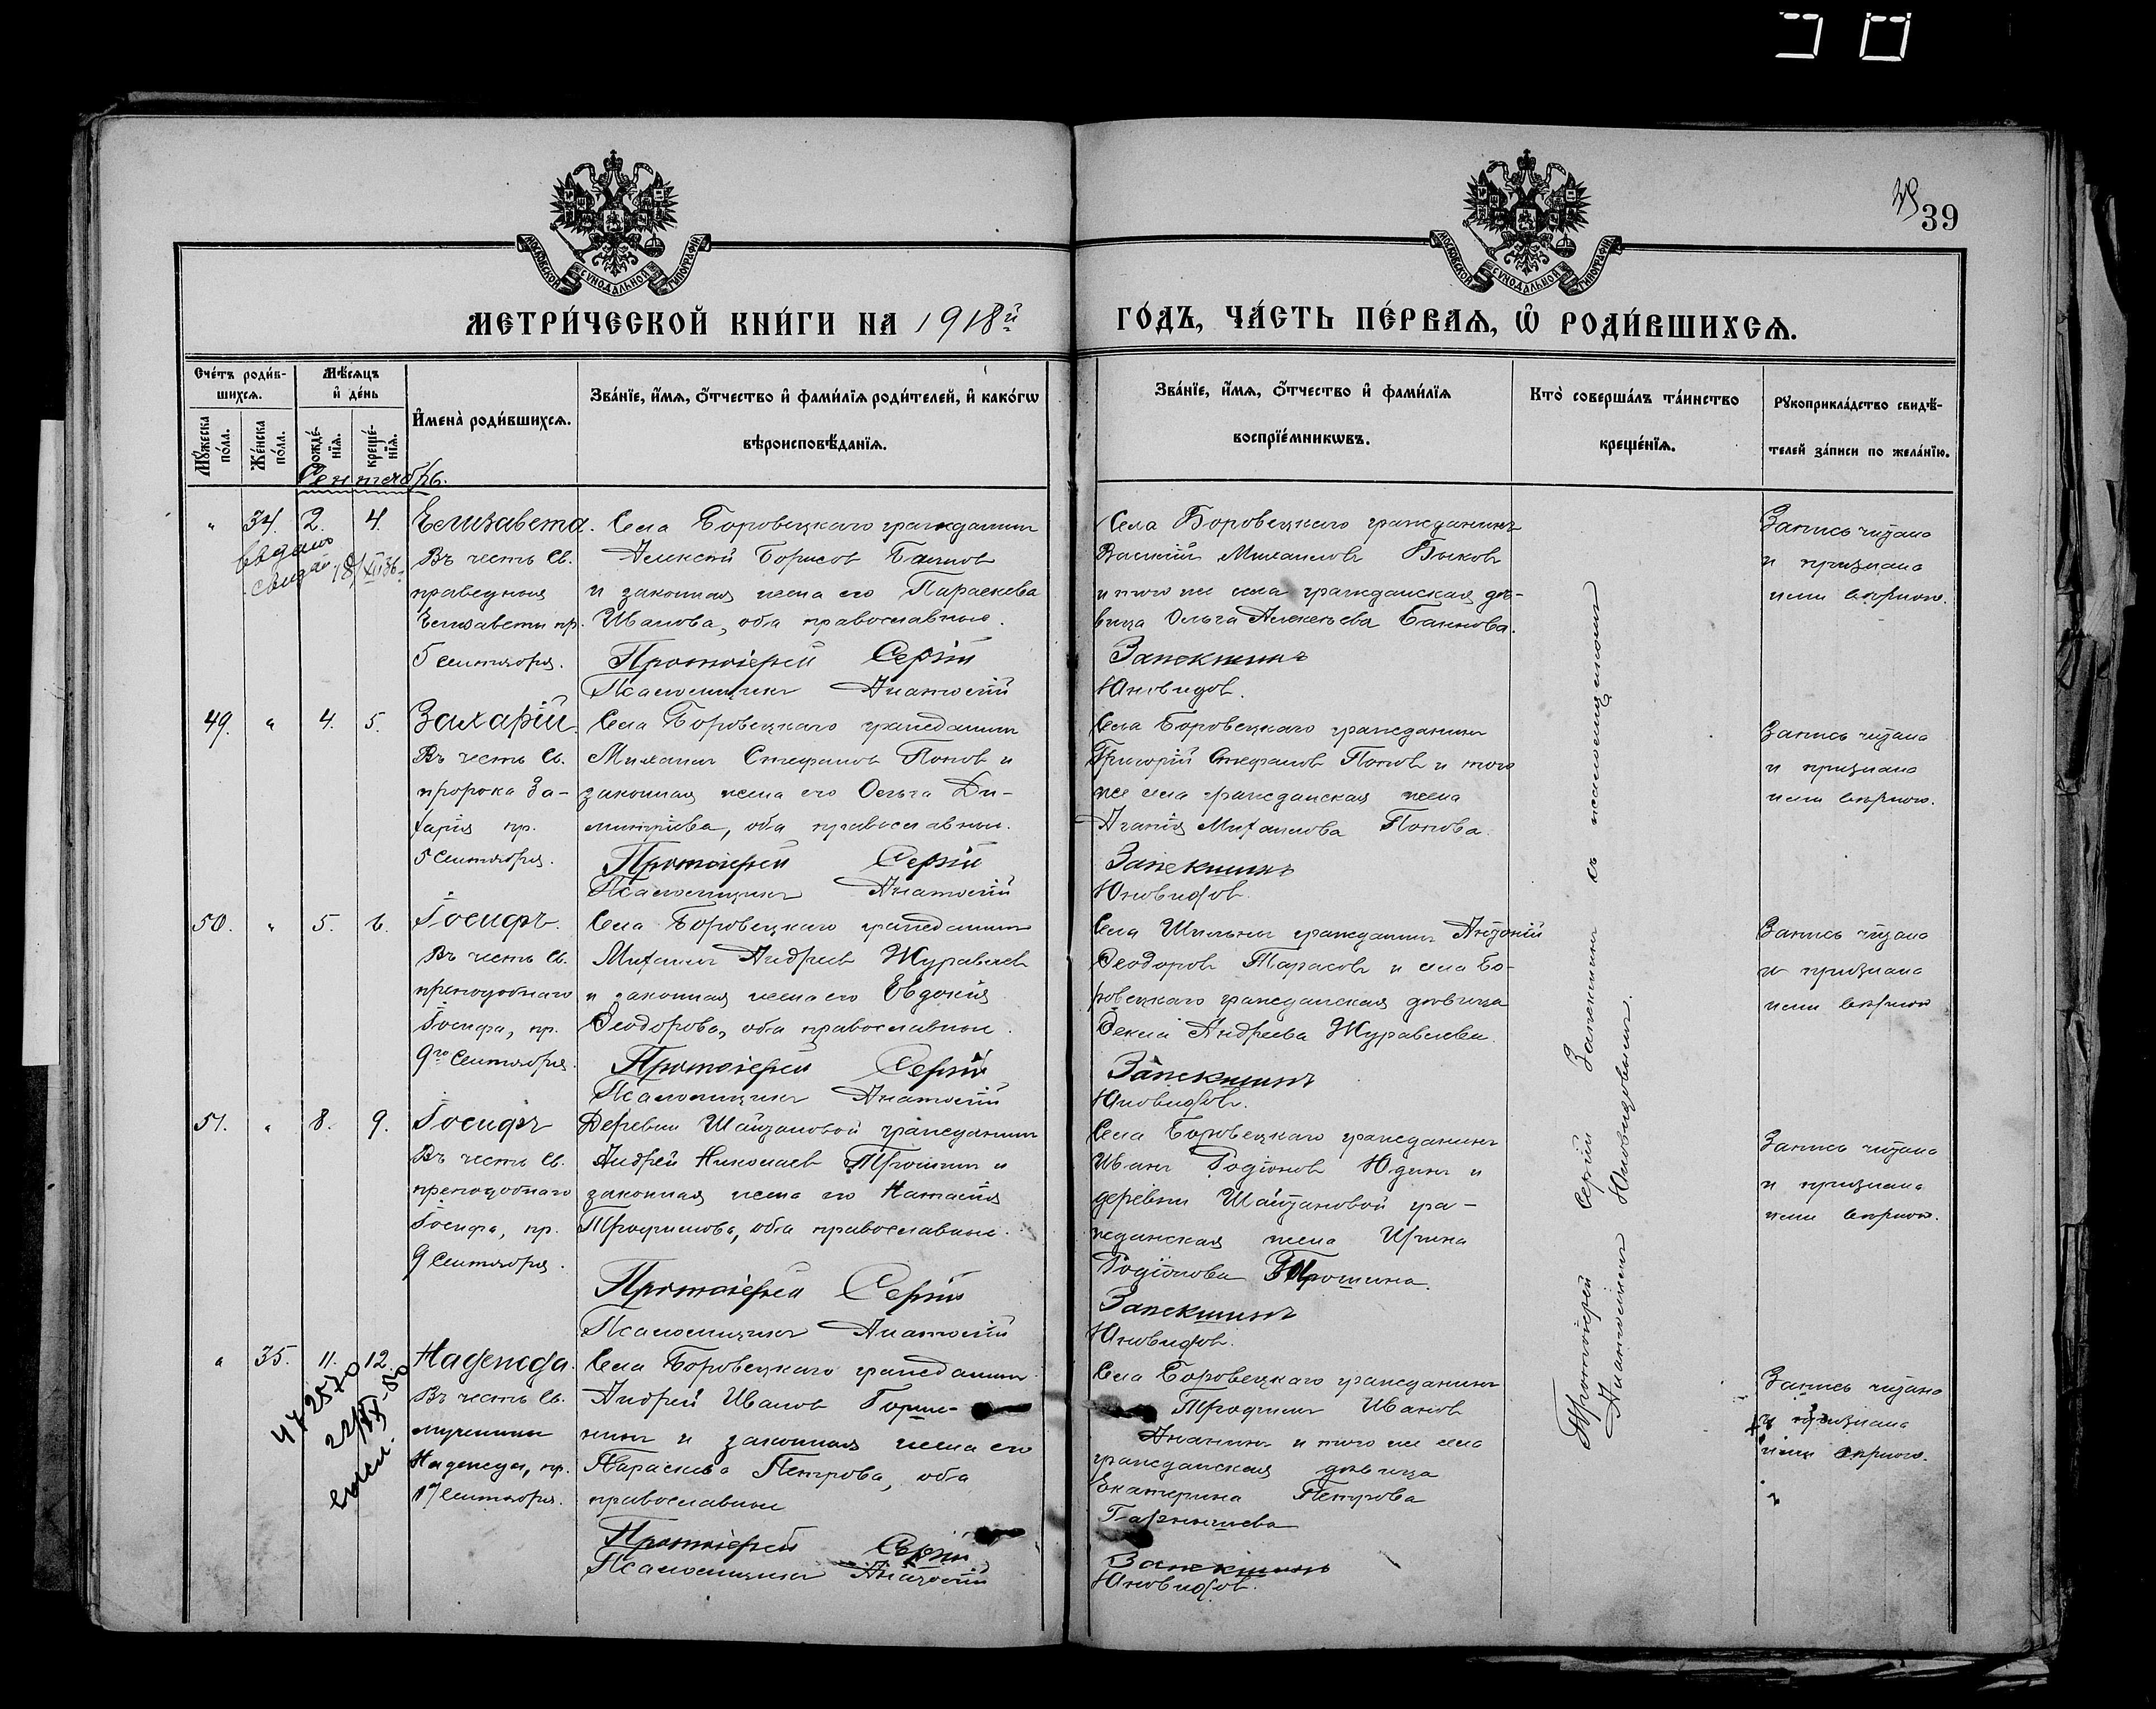 39
39
МОСКОВСКОЙ СѴНОДАЛЬНОЙ ТИПОГРАФІИ
МОСКОВСКОЙ СѴНОДАЛЬНОЙ ТИПОГРАФІИ
МЕТРИ́ЧЕСКОЙ КНИ́ГИ НА 1918й
ГО́ДЪ, ЧА́СТЬ ПЕ́РВАЯ, Ѽ РОДИ́ВШИХСЯ.
Сче́тъ роди́в-
шихся.
Мѣ́сяцъ
и҆ де́нь
Мꙋ́жеска по́ла.
Же́нска по́ла.
рожде́-
нїѧ.
креще́-
нїѧ.
И҆мена̀ роди́вшихся.
Зва́нїе, и҆́мя, ѻ҆́тчество и҆ фами́лїя роди́телей, и҆ како́гѡ
вѣроисповѣ́данїѧ.
Зва́нїе, и҆́мя, ѻ҆́тчество и҆ фами́лїя
воспрїе́мникѡвъ.
Кто̀ соверша́лъ та́инство
креще́нїѧ.
Рꙋкоприкла́дство свидѣ́-
телей за́писи по жела́нїю.
Сентябрь.
" 34. 2. 4. Елизавета.
Въ честь Св.
праведныя
Елизаветы пр.
5 Сентября.
Села Боровецкаго гражданинъ
Алексѣй Борисов Баннов
и законная жена его Параскева
Иванова, оба православные.
Протоіерей Сергій
Псаломщикъ Анатолій
Села Боровецкаго гражданинъ
Василій Михаиловъ Быковъ
и того же села гражданская дѣ-
вица Ольга Алексѣева Баннова.
Запекинъ
Юновидов.
Запись читана
и признана
ими вѣрною.
49. " 4. 5. Захарій.
Въ честь Св.
пророка За-
харія пр.
5 Сентября.
Села Боровецкаго гражданинъ
Михаилъ Стефанов Попов и
законная жена его Ольга Ди-
митріева, оба православные.
Протоіерей Сергій
Псаломщикъ Анатолій
Села Боровецкаго гражданинъ
Григорій Стефанов Попов и того
же села гражданская жена
Агапія Михаилова Попова.
Запекинъ
Юновидов.
Запись читана
и признана
ими вѣрною.
50. " 5. 6. Іосифъ.
Въ честь Св.
преподобнаго
Іосифа, пр.
9го Сентября.
Села Боровецкаго гражданинъ
Михаилъ Андреев Журавлев
и законная жена его Евдокія
Ѳеодорова, оба православные.
Протоіерей Сергій
Псаломщикъ Анатолій
Села Шильны гражданинъ Антоній
Ѳеодоровъ Тарасовъ и села Бо-
ровецкаго гражданская дѣвица
Ѳекла Андреева Журавлева.
Запекинъ
Юновидов.
Запись читана
и признана
ими вѣрною
51. " 8. 9. Іосифъ
Въ честь Св.
преподобнаго
Іосифа, пр.
9 Сентября.
Деревни Шайтановой гражданинъ
Андрей Николаев Трошин и
законная жена его Наталія
Трофимова, оба православные.
Протоіерей Сергій
Псаломщикъ Анатолій
Села Боровецкаго гражданинъ
Иванъ Родіонов Юдинъ и
деревни Шайтановой гра-
жданская жена Ирина
Родіонова Трошина.
Запекинъ
Юновидов.
Запись читана
и признана
ими вѣрною.
" 35. 11. 12. Надежда.
Въ честь Св.
мученицы
Надежды, пр.
17 Сентября.
Села Боровецкаго гражданинъ
Андрей Иванов
и законная жена его
Параскева Петрова, оба
православные
Протоіерей Сергій
Псаломщикъ Анатолій
Села Боровецкаго гражданинъ
Трофимъ Иванов
Ананьинъ и того же села
гражданская дѣвица
Екатерина Петрова
Запекинъ
Юновидов.
Запись читана
и признана
ими вѣрною.
Протоіерей Сергій Запекинъ съ псаломщикомъ
Анатоліемъ Юновидовымъ.